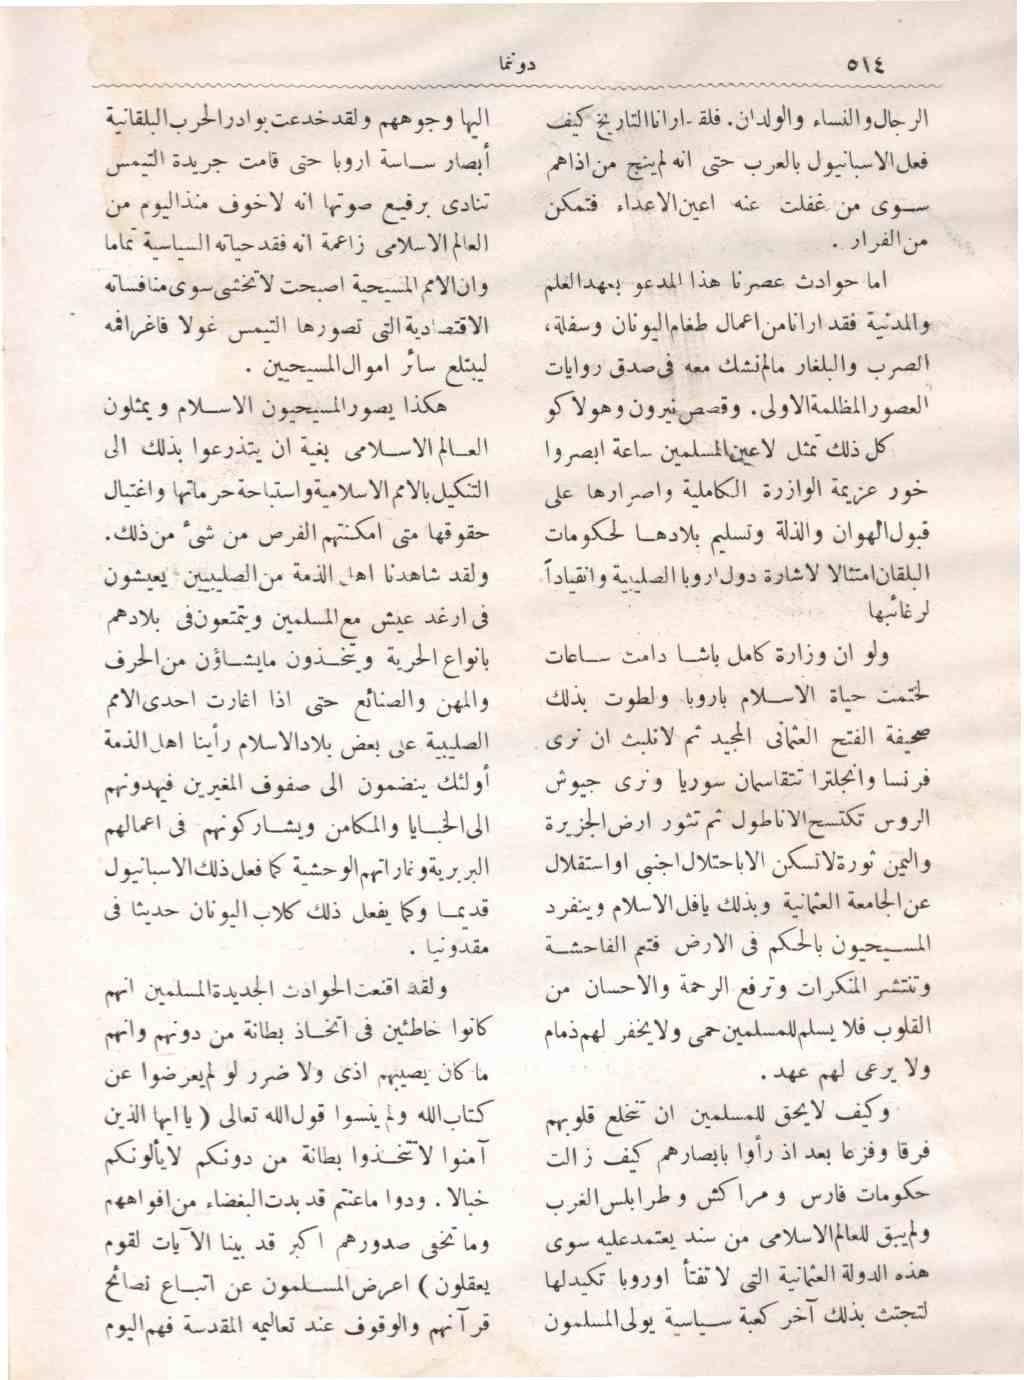 ٥١٤
دونما
الرجال والنساء والولدان. فلقد ارانا التاريخ كيف
فعل الاسبانيول بالعرب حتى انه لم ينج من اذاهم
سوى من غفلت عنه اعين الاعداء فتمكن
من الفرار .
اما حوادث عصرنا هذا المدعو بعهد العلم
والمدنية فقد ارانا من اعمال طغام اليونان وسفلة،
الصرب والبلغار مالم نشك معه فى صدق روايات
العصور المظلمة الاولى. وقصص نيرون وهولاكو
كل ذلك تمثل لاعين المسلمين ساعة ابصروا
خور عزيمة الوازرة الكاملية واصرارها على
قبول الهوان والذلة وتسليم بلادها لحكومات
البلقان امتثالا لاشارة دول اروبا الصليبية وانقياداً
لرغائبها
ولو ان وزارة كامل باشا دامت ساعات
لختمت حياة الاسلام باروبا ولطوت بذلك
صحيفة الفتح العثمانى المجيد ثم لانلبث ان نرى
فرنسا وانجلترا تتقاسمان سوريا ونرى جيوش
الروس تكتسح الاناطول ثم تثور ارض الجزيرة
واليمن ثورة لاتسكن الا باحتلال اجنبى او استقلال
عن الجامعة العثمانية وبذلك يافل الاسلام وينفرد
المسيحيون بالحكم فى الارض فتعم الفاحشة
وتنتشر المنكرات وترفع الرحمة والاحسان من
القلوب فلا يسلم للمسلمين حمى ولا يخفر لهم ذمام
ولا يرعى لهم عهد.
وكيف لايحق للمسلمين ان تنخلع قلوبهم
فرقا وفزعا بعد اذ رأوا بابصارهم كيف زالت
حكومات فارس ومراكش وطرابلس الغرب
ولم يبق للعالم الاسلامى من سند يعتمد عليه سوى
هذه الدولة العثمانية التى لاتفتأ اوروبا تكيد لها
لتجتث بذلك آخر كعبة سياسية يولى المسلمون
اليها وجوههم ولقد خدعت بوادر الحرب البلقانية
أبصار ساسة اروبا حتى قامت جريدة التيمس
تنادى برفيع صوتها انه لاخوف منذ اليوم من
العالم الاسلامى زاعمة انه فقد حياته السياسية تماما
وان الامم المسيحية اصبحت لاتخشى سوى منافساته
الاقتصادية التى تصورها التيمس غولا فاغرا فمه
ليبتلع سائر اموال المسيحيين .
هكذا يصور المسيحيون الاسلام ويمثلون
العالم الاسلامى بغية ان يتذرعوا بذلك الى
التنكيل بالامم الاسلامية واستباحة حرماتها واغتيال
حقوقها متى امكنتهم الفرص من شىء من ذلك.
ولقد شاهدنا اهل الذمة من الصليبيين يعيشون
فى ارغد عيش مع المسلمين ويتمتعون فى بلادهم
بانواع الحرية ويتخذون مايشاؤن من الحرف
والمهن والصنائع حتى اذا اغارت احدى الامم
الصليبية على بعض بلاد الاسلام رأينا اهل الذمة
أولئك ينضمون الى صفوف المغيرين فيهدونهم
الى الخبايا والمكامن ويشاركونهم فى اعمالهم
البربرية وغاراتهم الوحشية كما فعل ذلك الاسبانيول
قديما وكما يفعل ذلك كلاب اليونان حديثا فى
مقدونيا .
ولقد اقنعت الحوادث الجديدة المسلمين انهم
كانوا خاطئين فى اتخاذ بطانة من دونهم وانهم
ما كان يصيبهم اذى ولا ضرر لو لم يعرضوا عن
كتاب الله ولم ينسوا قول الله تعالى ( يا ايها الذين
آمنوا لاتتخذوا بطانة من دونكم لايألونكم
خبالا. ودوا ماعنتم قد بدت البغضاء من افواههم
وما تخفى صدورهم اكبر قد بينا الآيات لقوم
يعقلون ) اعرض المسلمون عن اتباع نصائح
قرآنهم والوقوف عند تعاليمه المقدسة فهم اليوم